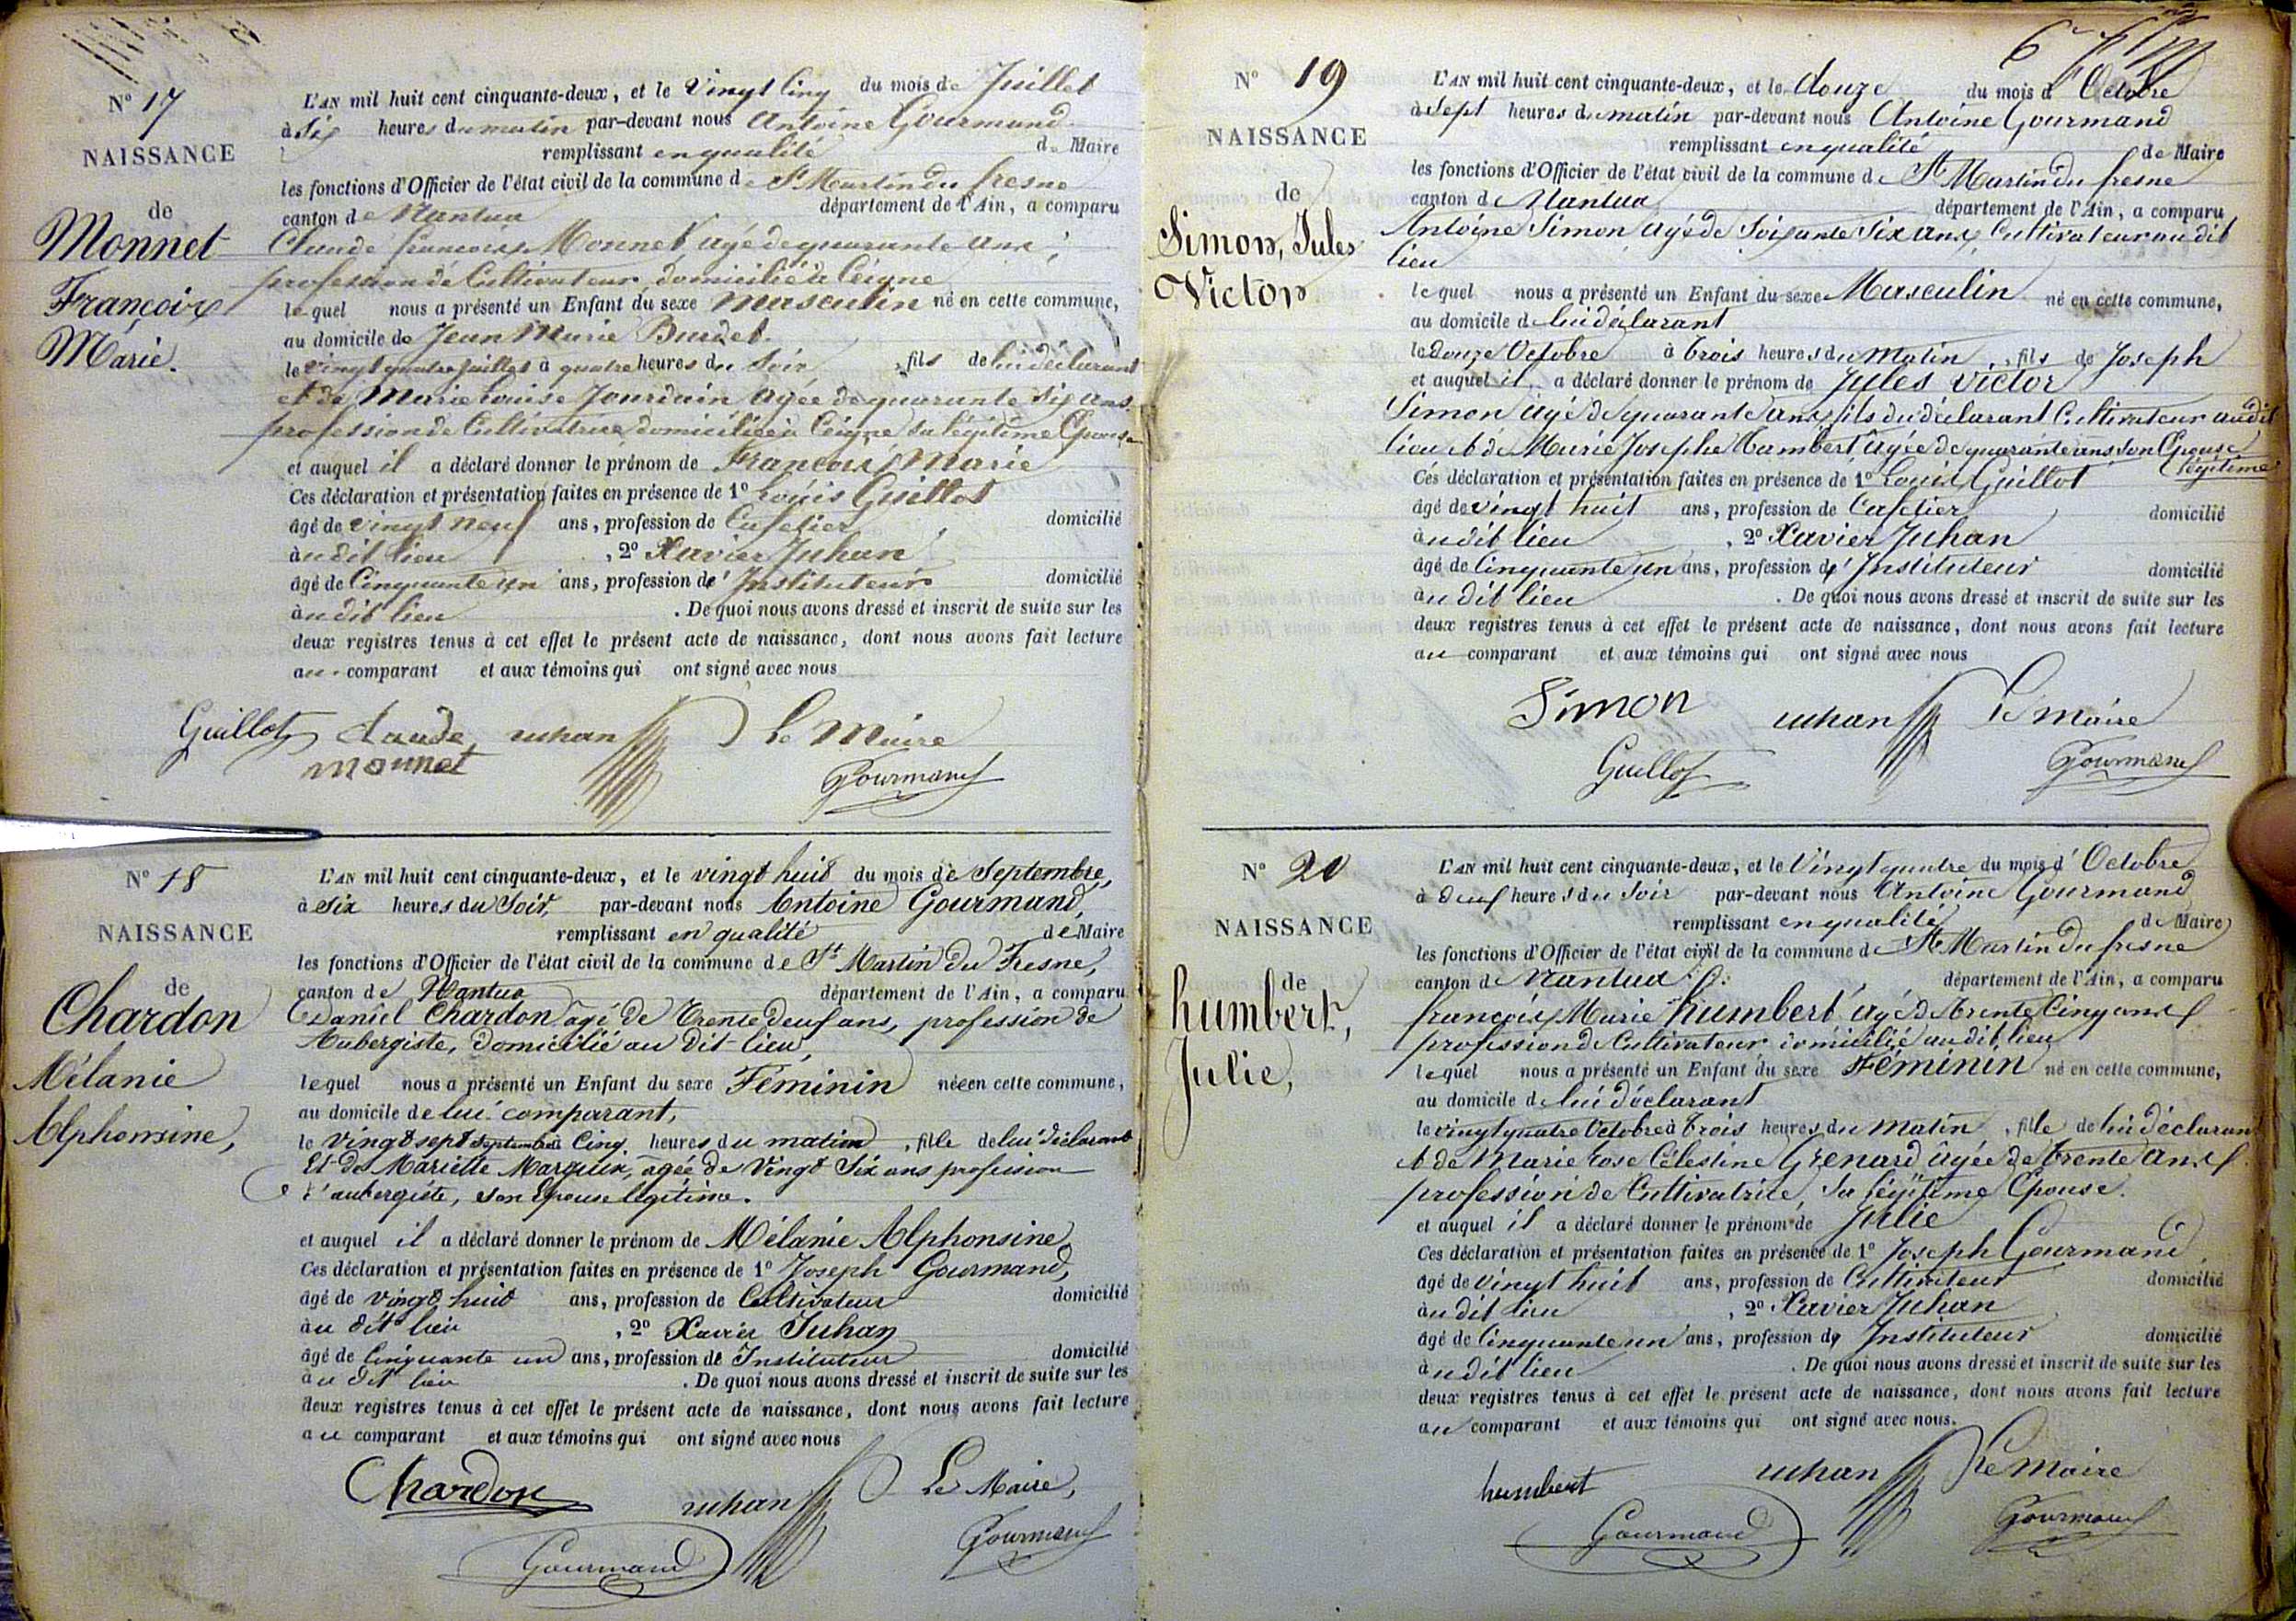 N° 17
NAISSANCE
de
Monnet
François
Marie.
L'AN mil huit cent cinquante-deux, et le Vingt Cinq du mois de Juillet
à Six heures du matin par-devant nous Antoine Gourmand
remplissant en qualité de Maire
les fonctions d'Officier de l'état civil de la commune de St Martin du fresne
canton de Nantua département de l'Ain, a comparu
Claude françois Monnet, agé de quarante ans,
profession de Cultivateur, domicilié à Ceigne
lequel nous a présenté un Enfant du sexe Masculin né en cette commune,
au domicile de Jean Marie Burdet.
le vingt quatre Juillet à quatre heures du Soir, fils de lui déclarant
et de Marie Louise Jourdain agée de quarante Six ans
profession de Cultivatrice domiciliée à Ceigne sa légitime Epouse
et auquel il a déclaré donner le prénom de François Marie
Ces déclaration et présentation faites en présence de 1° Louis Guillot
âgé de vingt neuf ans, profession de Cafetier, domicilié
au dit lieu, 2° Xavier Juhan
âgé de Cinquante un ans, profession d'Instituteur domicilié
au dit lieu. De quoi nous avons dressé et inscrit de suite sur les
deux registres tenus à cet effet le présent acte de naissance, dont nous avons fait lecture
au comparant et aux témoins qui ont signé avec nous
Guillot Claude Juhan Le Maire
Monnet Gourmand
N° 18
NAISSANCE
de
Chardon
Mélanie
Alphonsine,
L'AN mil huit cent cinquante-deux, et le vingt huit du mois de Septembre,
à Six heures du Soir, par-devant nous Antoine Gourmand,
remplissant en qualité de Maire
les fonctions d'Officier de l'état civil de la commune de St Martin du Fresne,
canton de Nantua département de l'Ain, a comparu
Daniel Chardon agé de Trente deux ans, profession de
Aubergiste, domicilié au dit lieu,
lequel nous a présenté un Enfant du sexe Féminin née en cette commune,
au domicile de lui comparant,
le vingt sept septembre à Cinq heures du matin, fille de lui déclarant
Et de Mariette Marguin, agée de Vingt Six ans profession
d'aubergiste, son Epouse légitime.
et auquel il a déclaré donner le prénom de Mélanie Alphonsine
Ces déclaration et présentation faites en présence de 1° Joseph Gourmand,
âgé de vingt huit ans, profession de Cultivateur domicilié
au dit lieu, 2° Xavier Juhan
âgé de Cinquante un ans, profession de Instituteur domicilié
au dit lieu. De quoi nous avons dressé et inscrit de suite sur les
deux registres tenus à cet effet le présent acte de naissance, dont nous avons fait lecture
au comparant et aux témoins qui ont signé avec nous
Chardon Juhan Le Maire,
Gourmand Gourmand
N° 19
NAISSANCE
de
Simon, Jules
Victor
L'AN mil huit cent cinquante-deux, et le douze du mois d'Octobre
à Sept heures du matin par-devant nous Antoine Gourmand
remplissant en qualité de Maire
les fonctions d'Officier de l'état civil de la commune de St Martin du fresne
canton de Nantua département de l'Ain, a comparu
Antoine Simon agé de Soixante Six ans, Cultivateur au dit
lieu
lequel nous a présenté un Enfant du sexe Masculin né en cette commune,
au domicile de lui déclarant
le Douze Octobre à trois heures du Matin, fils de Joseph
et auquel il a déclaré donner le prénom de Jules Victor
Simon agé de quarante ans, fils du déclarant Cultivateur au dit
lieu et de Marie Josephe Humbert agée de quarante ans son Epouse
légitime
Ces déclaration et présentation faites en présence de 1° Louis Guillot
âgé de vingt huit ans, profession de Cafetier, domicilié
au dit lieu, 2° Xavier Juhan
âgé de Cinquante un ans, profession d'Instituteur domicilié
au dit lieu. De quoi nous avons dressé et inscrit de suite sur les
deux registres tenus à cet effet le présent acte de naissance, dont nous avons fait lecture
au comparant et aux témoins qui ont signé avec nous
Simon Juhan Le Maire
Guillot Gourmand
N° 20
NAISSANCE
de
humbert,
Julie,
L'AN mil huit cent cinquante-deux, et le Vingt quatre du mois d'Octobre
à deux heures du Soir par-devant nous Antoine Gourmand
remplissant en qualité de Maire
les fonctions d'Officier de l'état civil de la commune de St Martin du fresne
canton de Nantua département de l'Ain, a comparu
françois Marie humbert agé de trente Cinq ans
profession de Cultivateur domicilié au dit lieu
lequel nous a présenté un Enfant du sexe Féminin né en cette commune,
au domicile de lui déclarant
le vingt quatre Octobre à trois heures du Matin, fille de lui déclarant
et de Marie Rose Célestine Grenard âgée de trente ans
profession de Cultivatrice, sa légitime Epouse.
et auquel il a déclaré donner le prénom de Julie
Ces déclaration et présentation faites en présence de 1° Joseph Gourmand,
âgé de vingt huit ans, profession de Cultivateur domicilié
au dit lieu, 2° Xavier Juhan
âgé de Cinquante un ans, profession d'Instituteur domicilié
au dit lieu. De quoi nous avons dressé et inscrit de suite sur les
deux registres tenus à cet effet le présent acte de naissance, dont nous avons fait lecture
au comparant et aux témoins qui ont signé avec nous.
humbert Juhan Le Maire
Gourmand Gourmand